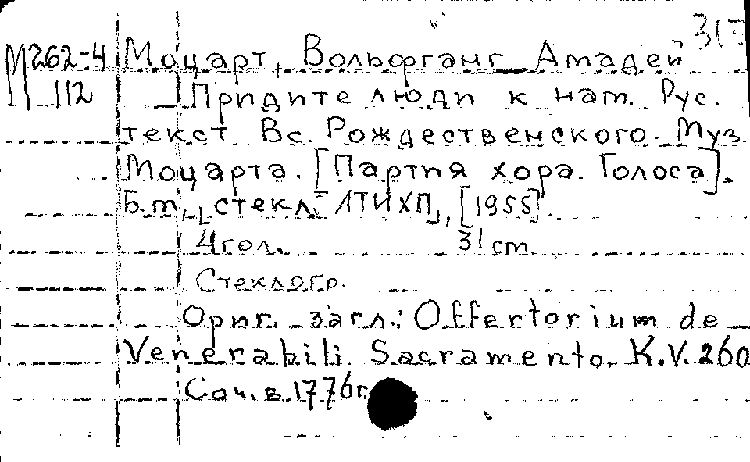 317
М262-4 Моцарт, Вольфганг Амадей
112 Придите люди к нам. Рус.
текст Вс. Рождественского. Муз
Моцарта. [Партия хора. Голоса].
Б.м., стекл. ЛТИХП, [1955].
4 гол. 31 cm.
Стеклогр.
Ориг. загл.: Offertorium de
Venerabili Sacramento. K.V. 260
Соч. в. 1776 г.